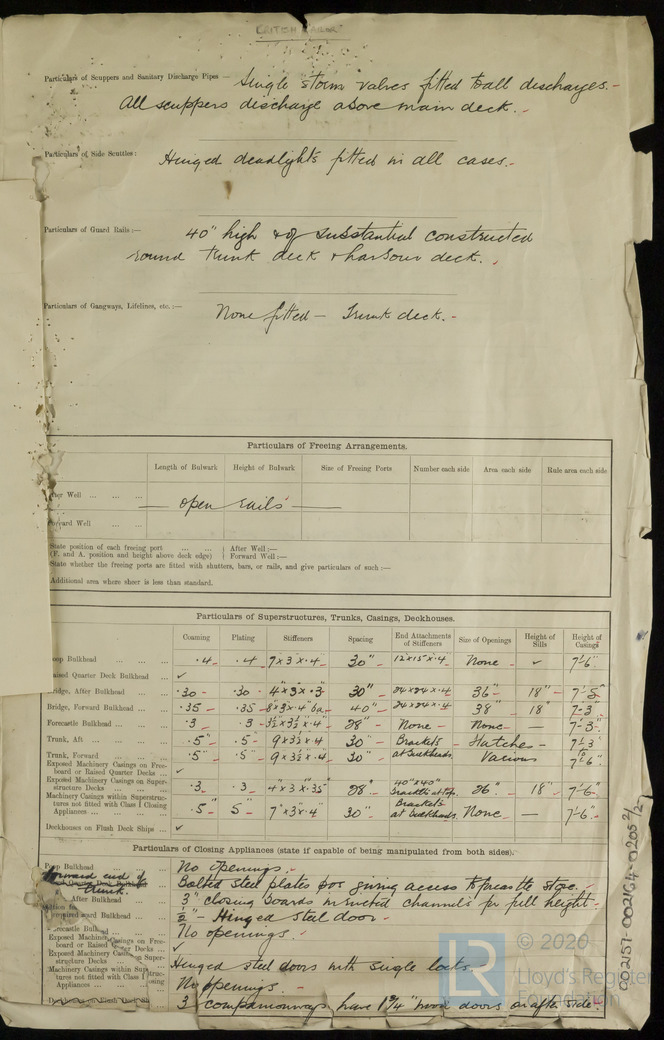 BRITISH SAILOR
Particulars of Scuppers and Sanitary Discharge Pipes — Single storm valves fitted to all discharges.-
All scuppers discharge above main deck.-
Particulars of Side Scuttles:
Hinged deadlights fitted in all cases.-
Particulars of Guard Rails:— 40" high & of substantial constructed
round trunk deck & harbour deck.
Particulars of Gangways, Lifelines, etc.:— None fitted — Trunk deck.-
Particulars of Freeing Arrangements.
Length of Bulwark Height of Bulwark Size of Freeing Ports Number each side Area each side Rule area each side
After Well ... ... ...
— open rails —
Forward Well ... ...
State position of each freeing port ... ... After Well:—
(F. and A. position and height above deck edge) Forward Well:—
State whether the freeing ports are fitted with shutters, bars, or rails, and give particulars of such :—
Additional area where sheer is less than standard.
Particulars of Superstructures, Trunks, Casings, Deckhouses.
Coaming Plating Stiffeners Spacing End Attachments of Stiffeners Size of Openings Height of Sills Height of Casings
Poop Bulkhead ... ... ... .4 .4 7 x 3 x .4 30" 12"x15"x.4 None ✓ 7'-6"
Raised Quarter Deck Bulkhead ... ✓
Bridge, After Bulkhead ... ... .30 .30 4" x 3" x .3 30" 24x24x.4 36" 18"
Bridge, Forward Bulkhead ... ... .35 .35 40" 24x24x.4 38" 18" 7'-3"
Forecastle Bulkhead ... ... .3 .3 3½ x 3½ x .4" 28" None None 7'-3"
Trunk, Aft ... ... ... .5" .5" 9 x 3½ x .4 30" Brackets Hatches 7'-3"
Trunk, Forward ... ... ... .5" .5" 9 x 3½ x .4 30" at bulkheads. Various to 7'-6"
Exposed Machinery Casings on Freeboard or Raised Quarter Decks ... ✓
Exposed Machinery Casings on Superstructure Decks ... ... .3 .3 4" x 3" x .35" 28" 40"x40" Brackets at top. 26" 18" 7'-6"
Machinery Casings within Superstructures not fitted with Class I Closing Appliances ... ... .5" 5" 7" x 3" x .4" 30" Brackets at bulkheads. None — 7'-6"
Deckhouses on Flush Deck Ships ... ✓
Particulars of Closing Appliances (state if capable of being manipulated from both sides).
Poop Bulkhead No openings.
forward end of trunk. Bolted steel plates for giving access to forecastle store.
After Bulkhead 3" closing boards in riveted channels for full height
Forward Bulkhead Hinged steel door
No openings.
Exposed Machinery Casings on Freeboard or Raised Quarter Decks ... ✓
Exposed Machinery Casings on Superstructure Decks ... Hinged steel doors with single locks.
Machinery Casings within Superstructures not fitted with Class I Closing No openings.
Deckhouses on Flush Deck 3 companionways have 1¾" wood doors on aft side.
002157-002164-0205 2/2
LR
© 2020
Lloyd's Register
Foundation